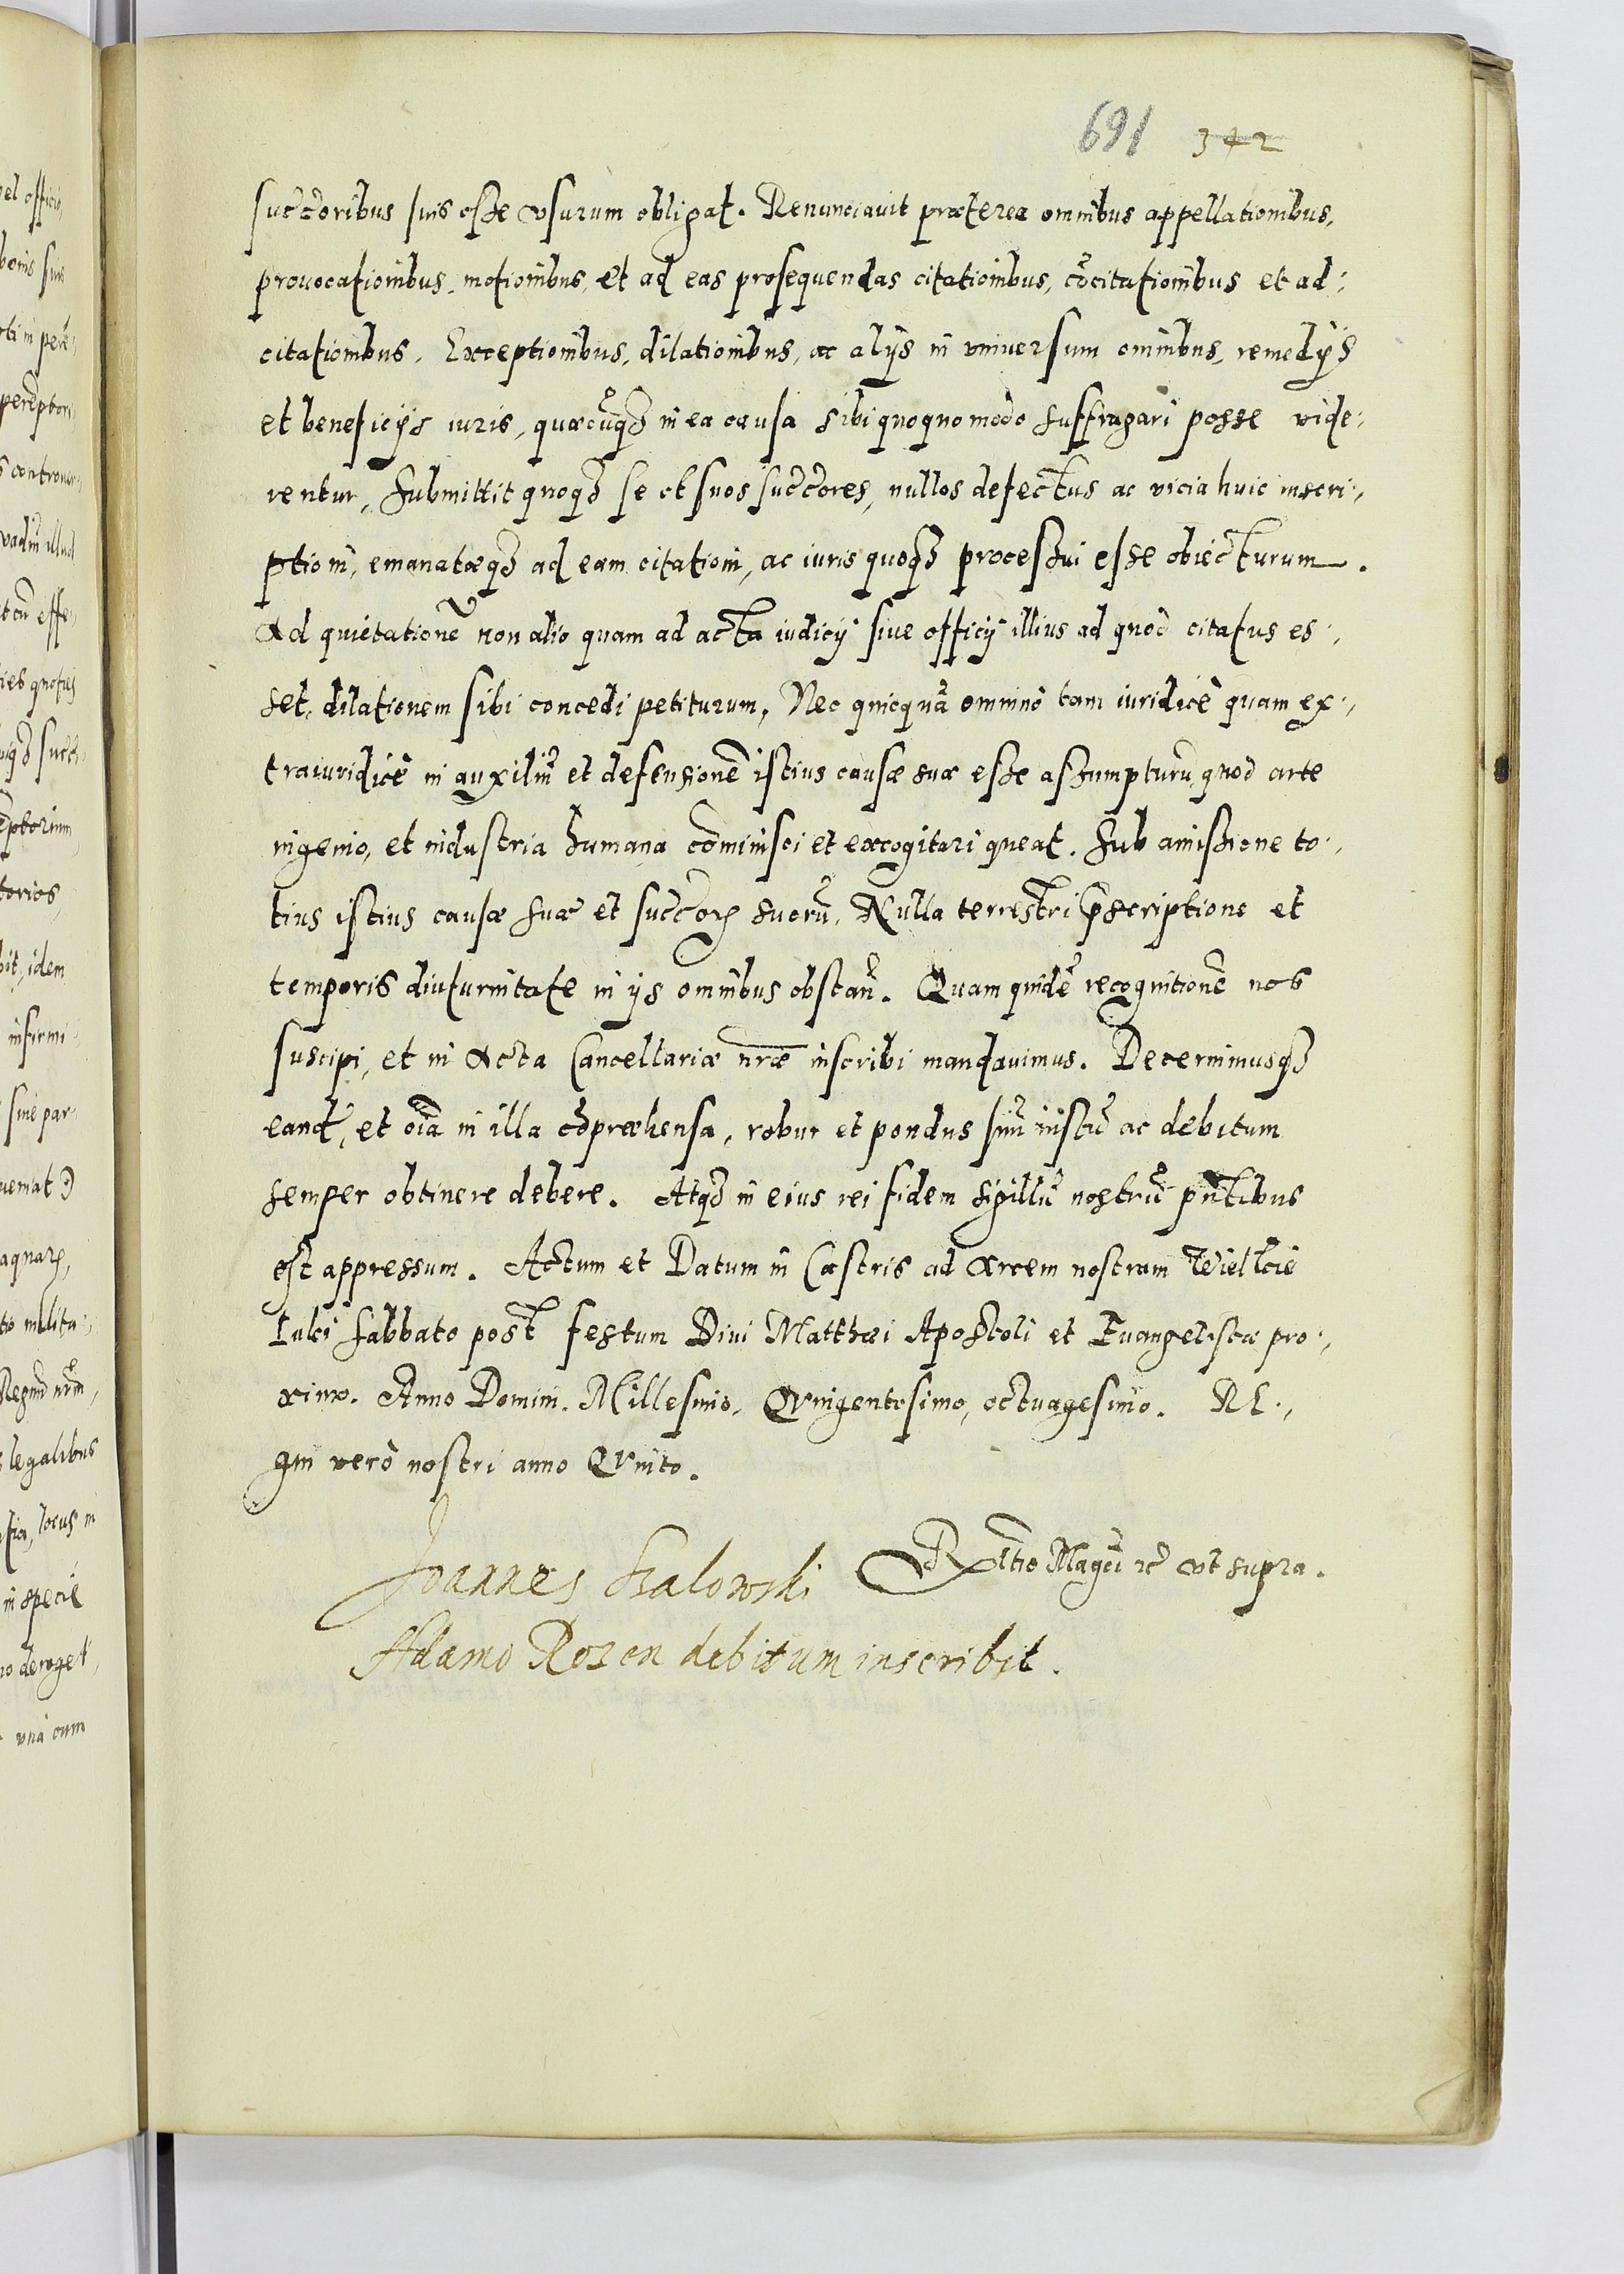 691 342
succoribus suis esse vsurum obligat. Renunciauit præterea omnibus appellationibus,
prouocationibus, motionibus, et ad eas prosequendas citationibus, cõcitationibus et ad:
citationibus. Exceptionibus, dilationibus, ac alijs in vniuersum omnibus, remedijs
et beneficijs iuris, quæcũqȝ in ea causa sibi quoquomodo suffragari posse vide:
rentur, Submittit quoqȝ se et suos succores, nullos defectus ac vicia huic inscri:,
ptioni, emanatæqȝ ad eam citationi, ac iuris quoqȝ processui esse obiecturum.
Ad quietationẽ non alio quam ad acta iudicij siue officij illius ad quod citatus es:,
set, dilationem sibi concedi petiturum, Nec quicquã omnino tam iuridicè quam ex:,
traiuridicè in auxiliũ et defensionẽ istius causæ suæ esse assumpturũ, quod arte
ingenio, et industria humana cõminisci et excogitari queat. Sub amissione to:,
tius istius causæ suæ et succoꝝ suorũ, Nulla terrestri p̃scriptione et
temporis diuturnitate in ijs omnibus obstañ. Quam quidẽ recognitionẽ nos
suscipi, et in Acta Cancellariæ nr̃æ inscribi mandauimus. Decernimusqȝ
eand̃, et oĩa in illa cõpræhensa, robur et pondus suũ iustũ ac debitum
semper obtinere debere. Atqȝ in eius rei fidem sigillũ nostrũ pñtibus
est appressum. Actum et Datum in Castris ad Arcem nostram Wielkie
Luki Sabbato post festum Diui Matthæi Apostoli et Euangelistæ pro:,
ximo. Anno Domini. Millesimo, Quingentesimo, octuagesimo. RE:,
gni verò nostri anno Quinto.
Joannes Skalowski Rltio Magci rc̃ vt supra.
Adamo Rozen debitum inscribit.